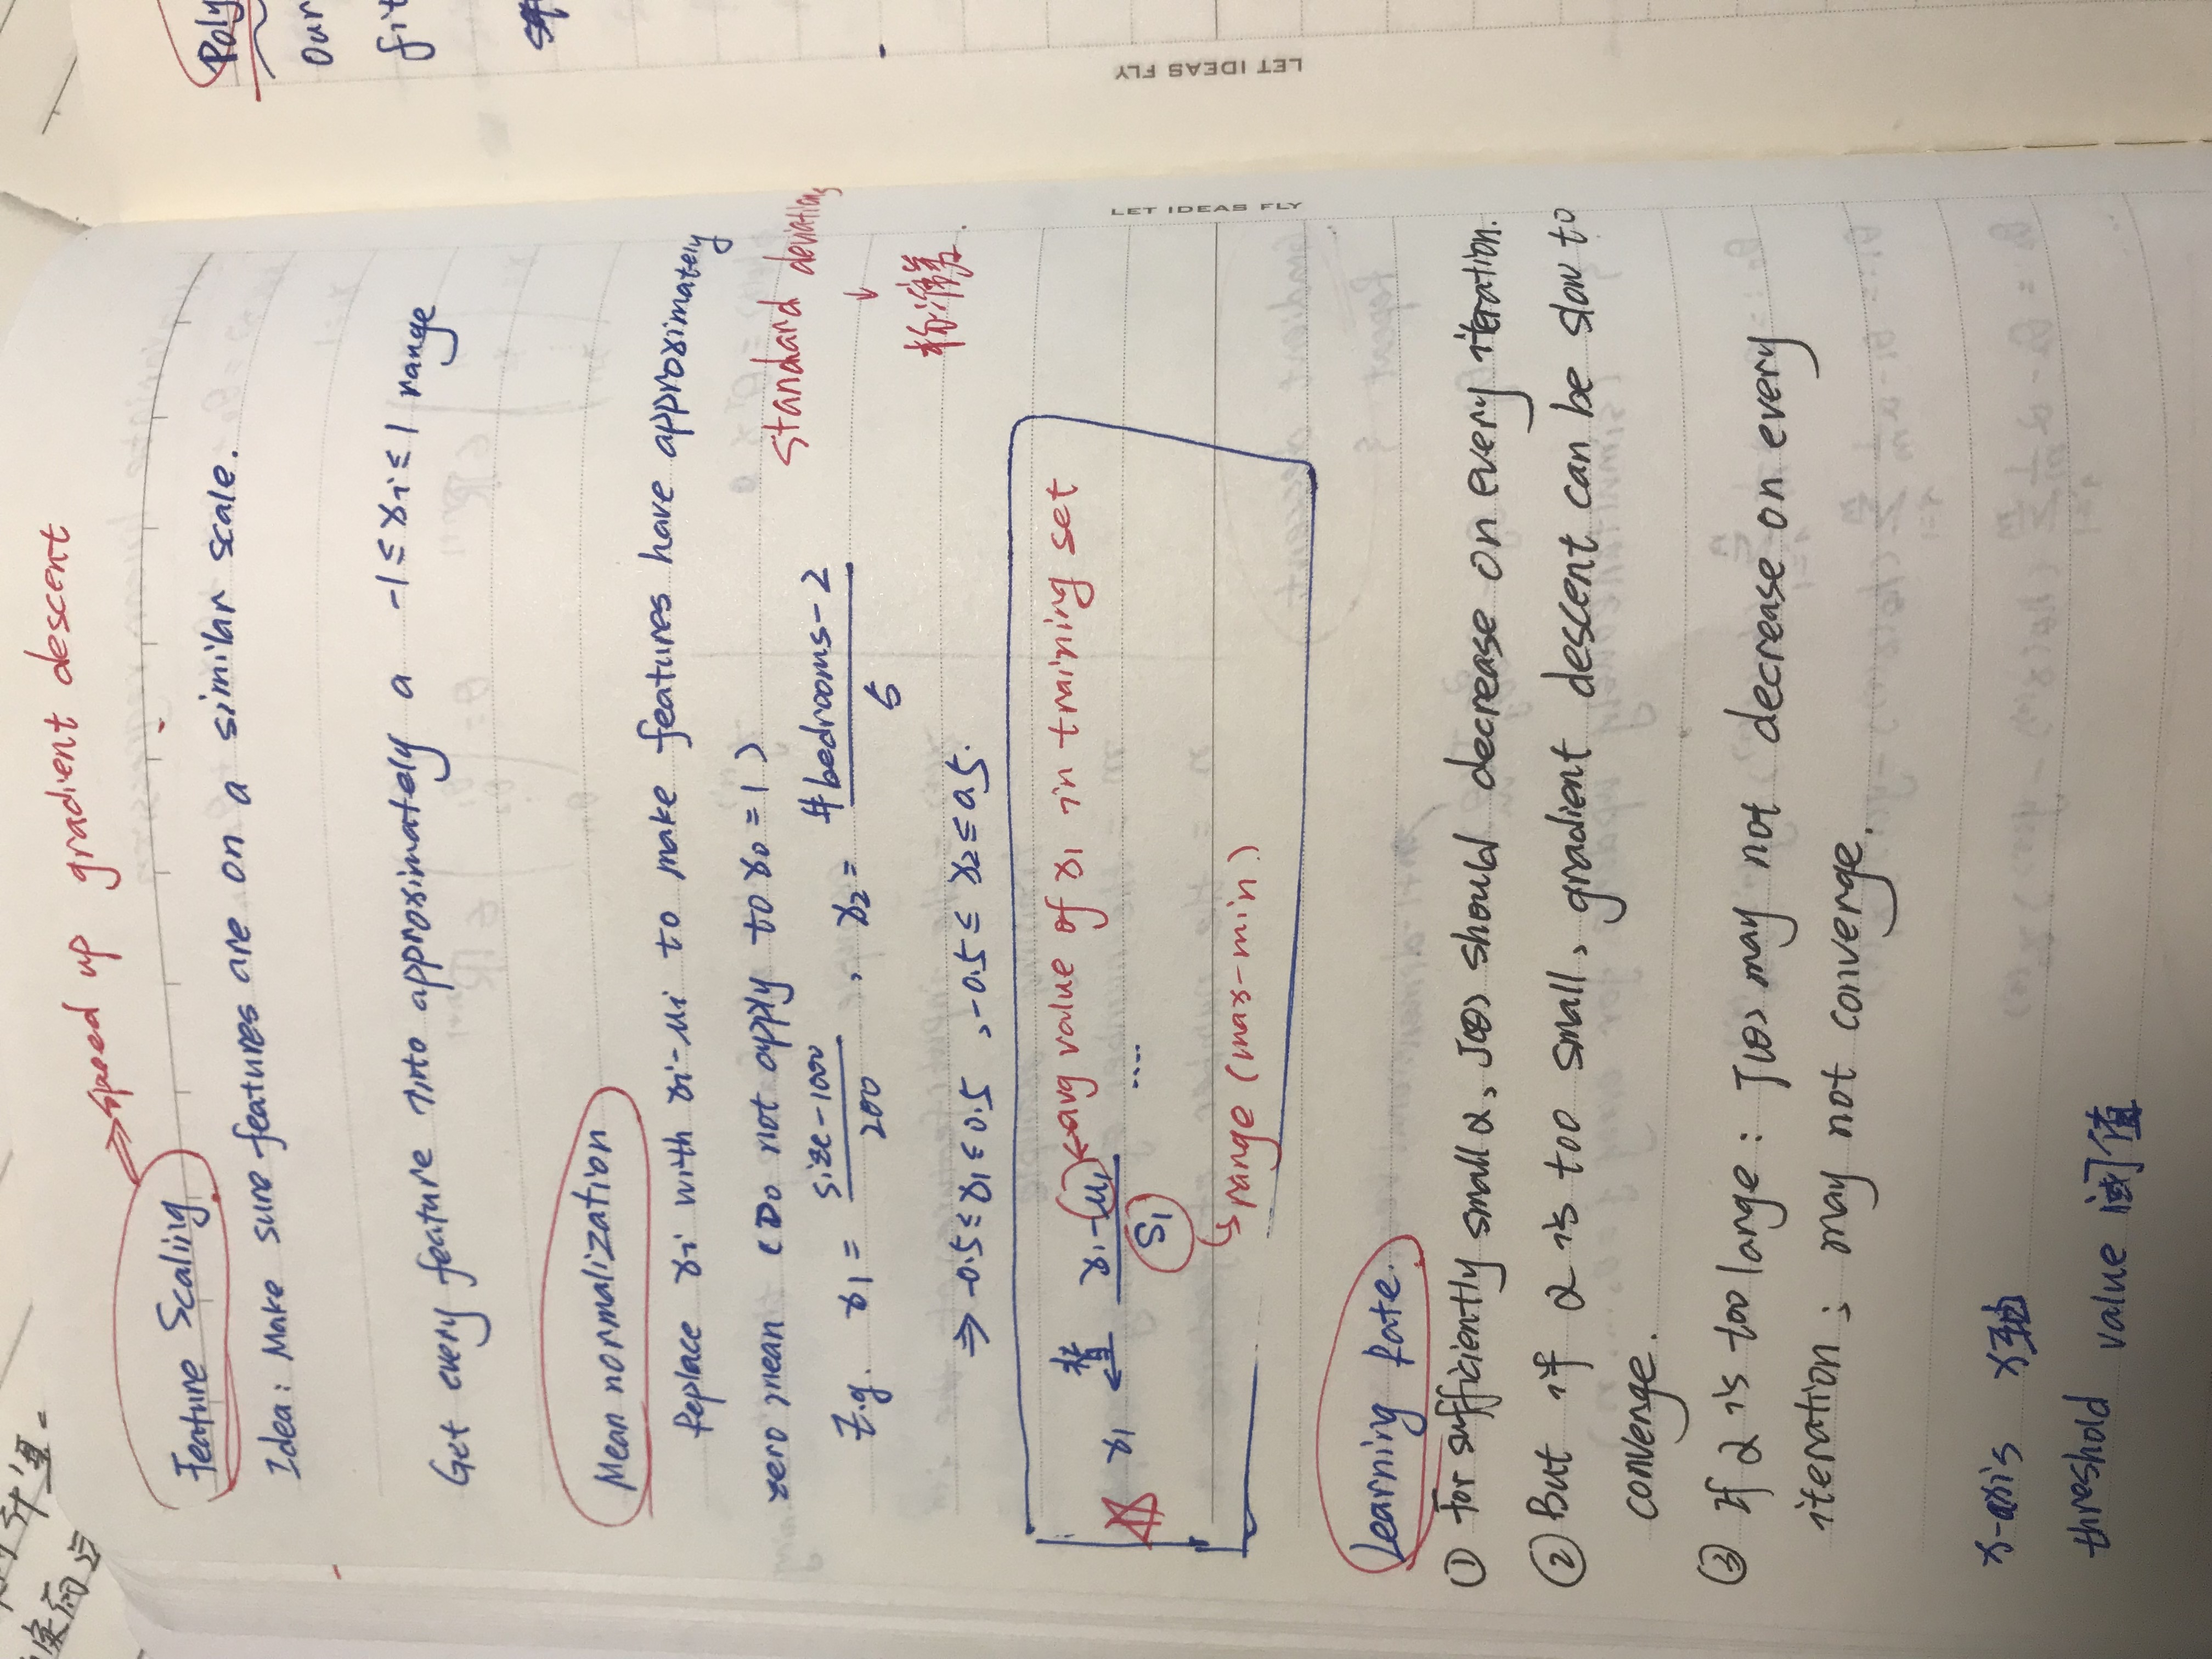 计算。
⇒speed up gradient descent
Feature Scaling
Idea: Make sure features are on a similar scale.
Get every feature into approximately a -1≤xi≤1 range
Mean normalization
Replace xi with xi-μi to make features have approximately
zero mean (Do not apply to x0=1)
standard deviations
↓
标准差
E.g. x1 = (size-1000)/200 , x2 = (#bedrooms-2)/5
⇒ -0.5≤x1≤0.5 , -0.5≤ x2≤0.5.
x1 ←替 (x1-μ1)/S1 ....
←avg value of x1 in training set
range (max-min)
Learning Rate.
① For sufficiently small α, J(θ) should decrease on every iteration.
② But if α is too small, gradient descent can be slow to
converge.
③ If α is too large: J(θ) may not decrease on every
iteration; may not converge.
x-axis x轴
threshold value 阈值
LET IDEAS FLY
LET IDEAS FLY
Poly
our
fit